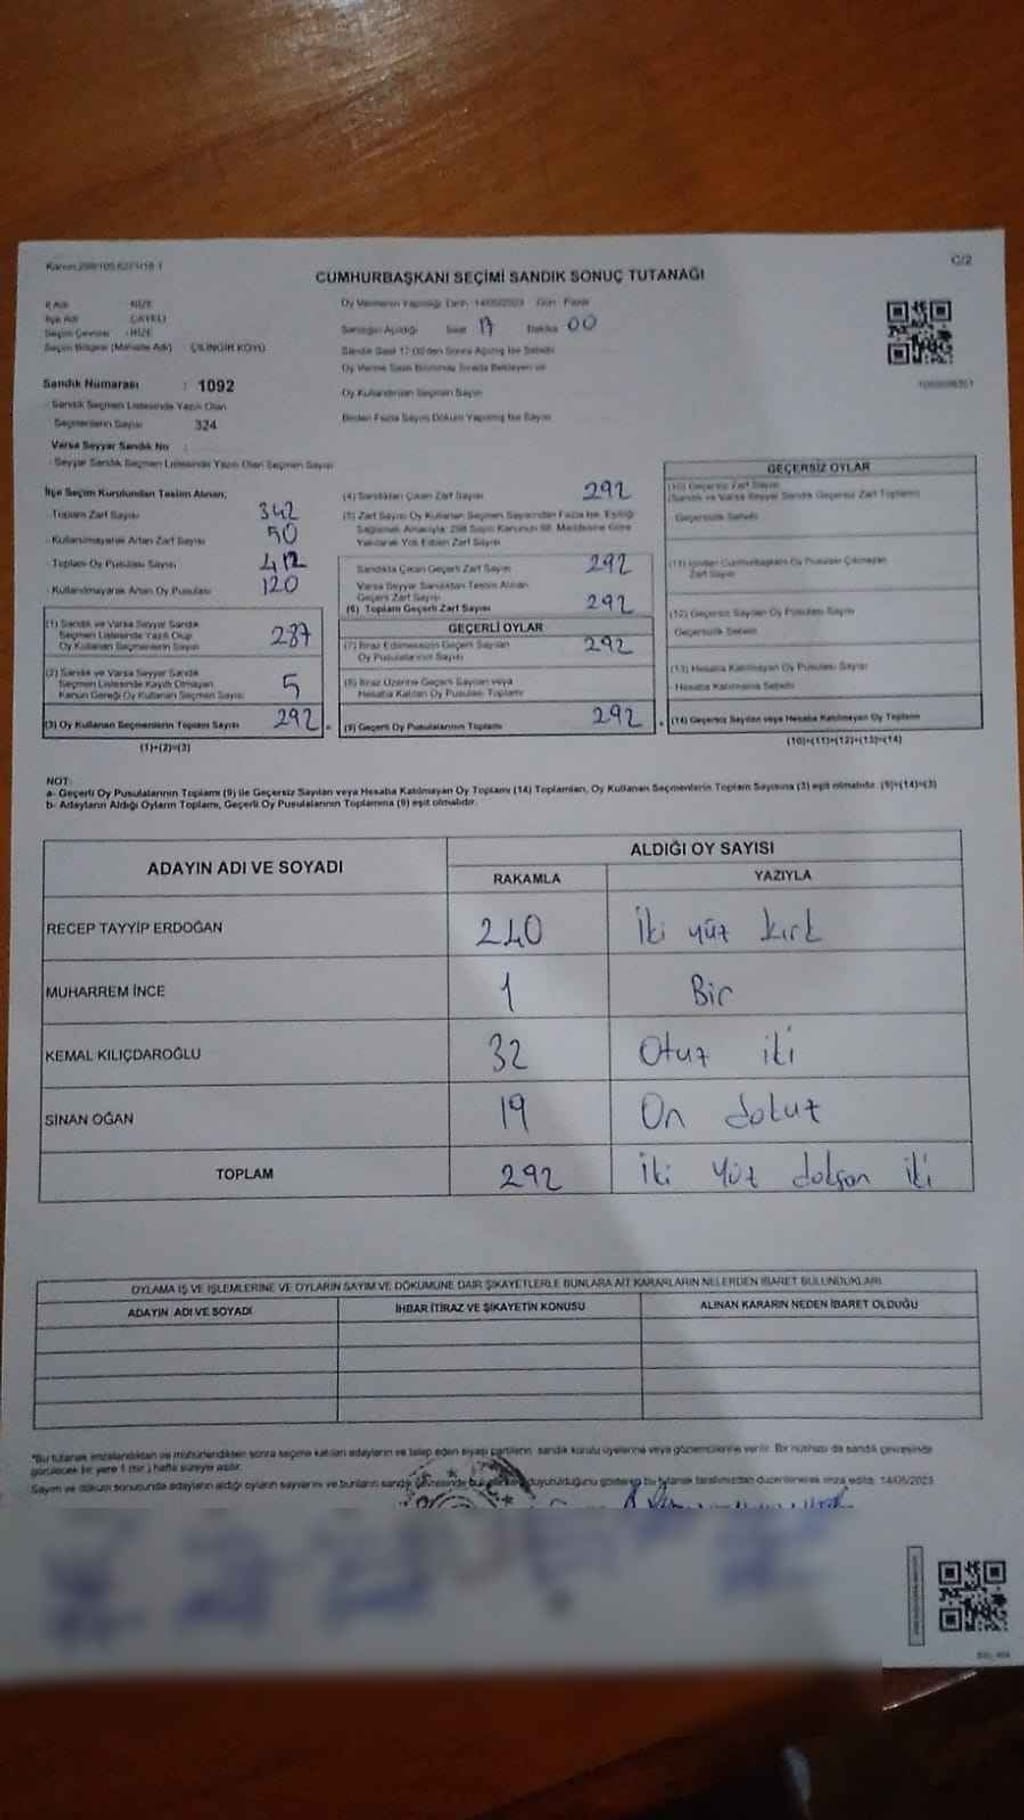 C/2
CUMHURBAŞKANI SEÇİMİ SANDIK SONUÇ TUTANAĞI
İl Adı : RİZE
İlçe Adı : ÇAYELİ
Seçim Çevresi : RİZE
Seçim Bölgesi (Mahalle Adı) ÇİLİNGİR KÖYÜ
Oy Vermenin Yapıldığı Tarih : 14/05/2023 Gün : Pazar
Sandığın Açıldığı Saat 17 Dakika 00
Sandık Saat 17:00'den Sonra Açılmış İse Sebebi
Oy Kullandırılan Seçmen Sayısı
Birden Fazla Sayım Döküm Yapılmış İse Sayısı
Sandık Numarası : 1092
Sandık Seçmen Listesinde Yazılı Olan
Seçmenlerin Sayısı 324
Varsa Seyyar Sandık No :
Seyyar Sandık Seçmen Listesinde Yazılı Olan Seçmen Sayısı
İlçe Seçim Kurulundan Teslim Alınan;
Toplam Zarf Sayısı 342
Kullanılmayarak Artan Zarf Sayısı 50
Toplam Oy Pusulası Sayısı 412
Kullanılmayarak Artan Oy Pusulası 120
(1) Sandık ve Varsa Seyyar Sandık
Seçmen Listesinde Yazılı Olup
Oy Kullanan Seçmenlerin Sayısı 287
(2) Sandık ve Varsa Seyyar Sandık
Seçmen Listesinde Kayıtlı Olmayan
Kanun Gereği Oy Kullanan Seçmen Sayısı 5
(3) Oy Kullanan Seçmenlerin Toplam Sayısı 292
(1)+(2)=(3)
(4) Sandıktan Çıkan Zarf Sayısı 292
(5) Zarf Sayısı Oy Kullanan Seçmen Sayısından Fazla İse, Eşitliği
Sağlamak Amacıyla; 298 Sayılı Kanunun 98. Maddesine Göre
Yakılarak Yok Edilen Zarf Sayısı
Sandıkta Çıkan Geçerli Zarf Sayısı 292
Varsa Seyyar Sandıktan Teslim Alınan
Geçerli Zarf Sayısı
(6) Toplam Geçerli Zarf Sayısı 292
GEÇERLİ OYLAR
(7) İtiraz Edilmeksizin Geçerli Sayılan
Oy Pusulalarının Sayısı 292
(8) İtiraz Üzerine Geçerli Sayılan veya
Hesaba Katılan Oy Pusulası Toplamı
(9) Geçerli Oy Pusulalarının Toplamı 292
GEÇERSİZ OYLAR
(10) Geçersiz Zarf Sayısı
(Sandık ve Varsa Seyyar Sandık Geçersiz Zarf Toplamı)
Geçersizlik Sebebi
(11) İçinden Cumhurbaşkanı Oy Pusulası Çıkmayan
Zarf Sayısı
(12) Geçersiz Sayılan Oy Pusulası Sayısı
Geçersizlik Sebebi
(13) Hesaba Katılmayan Oy Pusulası Sayısı
Hesaba Katılmama Sebebi
(14) Geçersiz Sayılan veya Hesaba Katılmayan Oy Toplamı
(10)+(11)+(12)+(13)=(14)
NOT:
a- Geçerli Oy Pusulalarının Toplamı (9) ile Geçersiz Sayılan veya Hesaba Katılmayan Oy Toplamı (14) Toplamları, Oy Kullanan Seçmenlerin Toplam Sayısına (3) eşit olmalıdır. (9)+(14)=(3)
b- Adayların Aldığı Oyların Toplamı, Geçerli Oy Pusulalarının Toplamına (9) eşit olmalıdır.
ADAYIN ADI VE SOYADI
ALDIĞI OY SAYISI
RAKAMLA YAZIYLA
RECEP TAYYİP ERDOĞAN 240 İki yüz kırk
MUHARREM İNCE 1 Bir
KEMAL KILIÇDAROĞLU 32 Otuz iki
SİNAN OĞAN 19 On dokuz
TOPLAM 292 İki yüz doksan iki
OYLAMA İŞ VE İŞLEMLERİNE VE OYLARIN SAYIM VE DÖKÜMÜNE DAİR ŞİKAYETLERLE BUNLARA AİT KARARLARIN NELERDEN İBARET BULUNDUKLARI
ADAYIN ADI VE SOYADI İHBAR İTİRAZ VE ŞİKAYETİN KONUSU ALINAN KARARIN NEDEN İBARET OLDUĞU
*Bu tutanak imzalandıktan ve mühürlendikten sonra seçime katılan adayların ve talep eden siyasi partilerin sandık kurulu üyelerine veya gözlemcilerine verilir. Bir nüshası da sandık çevresinde
görülecek bir yere 1 (bir) hafta süreyle asılır.
Sayım ve döküm sonucunda adayların aldığı oyların sayılarını ve bunların sandık çevresinde duyurulduğunu gösteren bu tutanak tarafımızdan düzenlenerek imza edildi. 14/05/2023